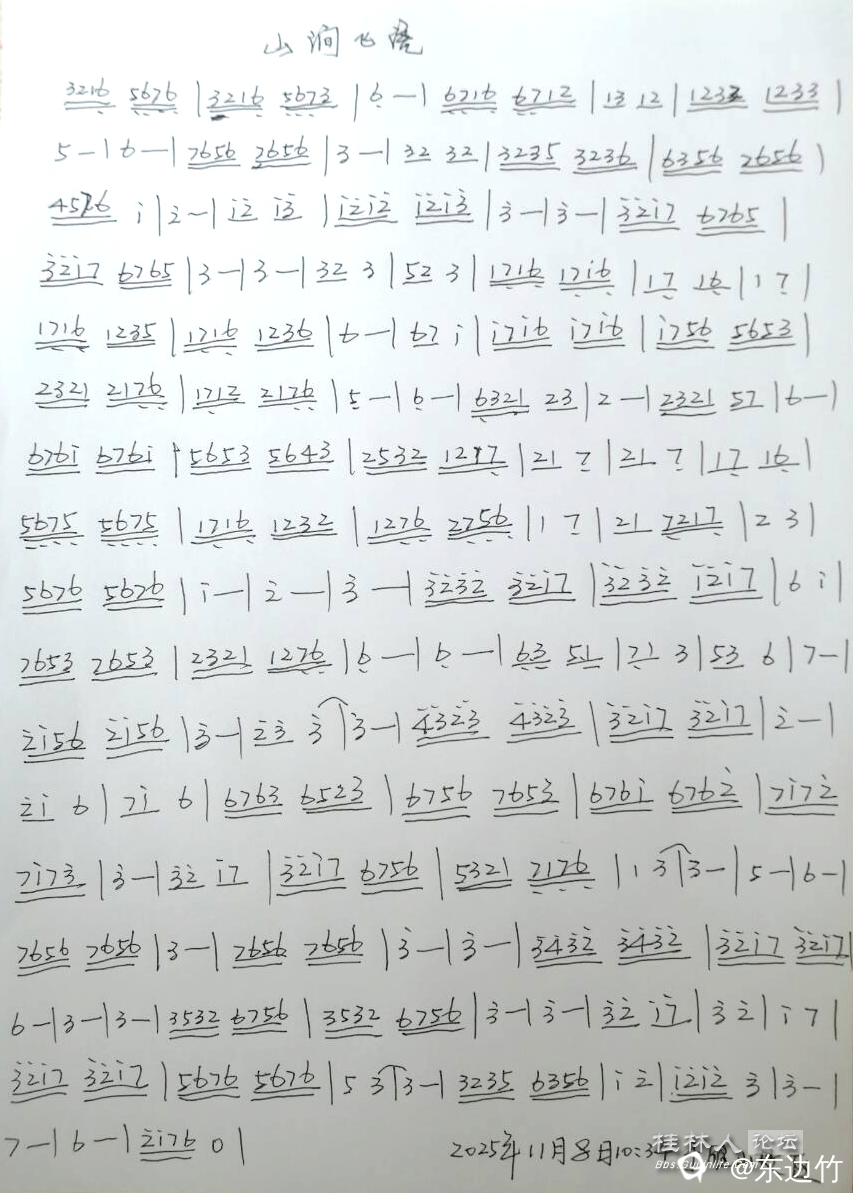 山涧飞莺
3216 5676 | 3216 5673 | 6 — | 6716 6712 | 13 12 | 1232 1233 |
5 — | 6 — | 7656 7656 | 3 — | 32 32 | 3235 3236 | 6356 2656 |
4576 i | 2 — | 12 13 | 1212 1213 | 3 — | 3 — | 3217 6765 |
3217 6765 | 3 — | 3 — | 32 3 | 52 3 | 1716 1716 | 17 16 | 1 7 |
1716 1235 | 1716 1236 | 6 — | 67 i | 1716 1716 | 1756 5653 |
2321 2176 | 1712 2176 | 5 — | 6 — | 6321 23 | 2 — | 2321 57 | 6 — |
6761 6761 | 5653 5643 | 2532 1217 | 21 7 | 21 7 | 17 16 |
5675 5675 | 1716 1232 | 1276 2756 | 1 7 | 21 7217 | 2 3 |
5676 5676 | i — | 2 — | 3 — | 3232 3217 | 3232 1217 | 6 i |
7653 7653 | 2321 1276 | 6 — | 6 — | 63 51 | 71 3 | 53 6 | 7 — |
2156 2156 | 3 — | 23 3 | 3 — | 4323 4323 | 3217 3217 | 2 — |
21 6 | 71 6 | 6763 6523 | 6756 7653 | 6761 6762 | 7172
7173 | 3 — | 32 17 | 3217 6756 | 5321 7176 | 1 3 | 3 — | 5 — | 6 — |
7656 7656 | 3 — | 7656 7656 | 3 — | 3 — | 3432 3432 | 3217 3217 |
6 — | 3 — | 3 — | 3532 6756 | 3532 6756 | 3 — | 3 — | 32 17 | 3 2 | i 7 |
3217 3217 | 5676 5676 | 5 3 | 3 — | 3235 6356 | i 2 | 1212 3 | 3 — |
7 — | 6 — | 2176 0 |
2025年11月8日10:3
桂林人论坛
@东边竹